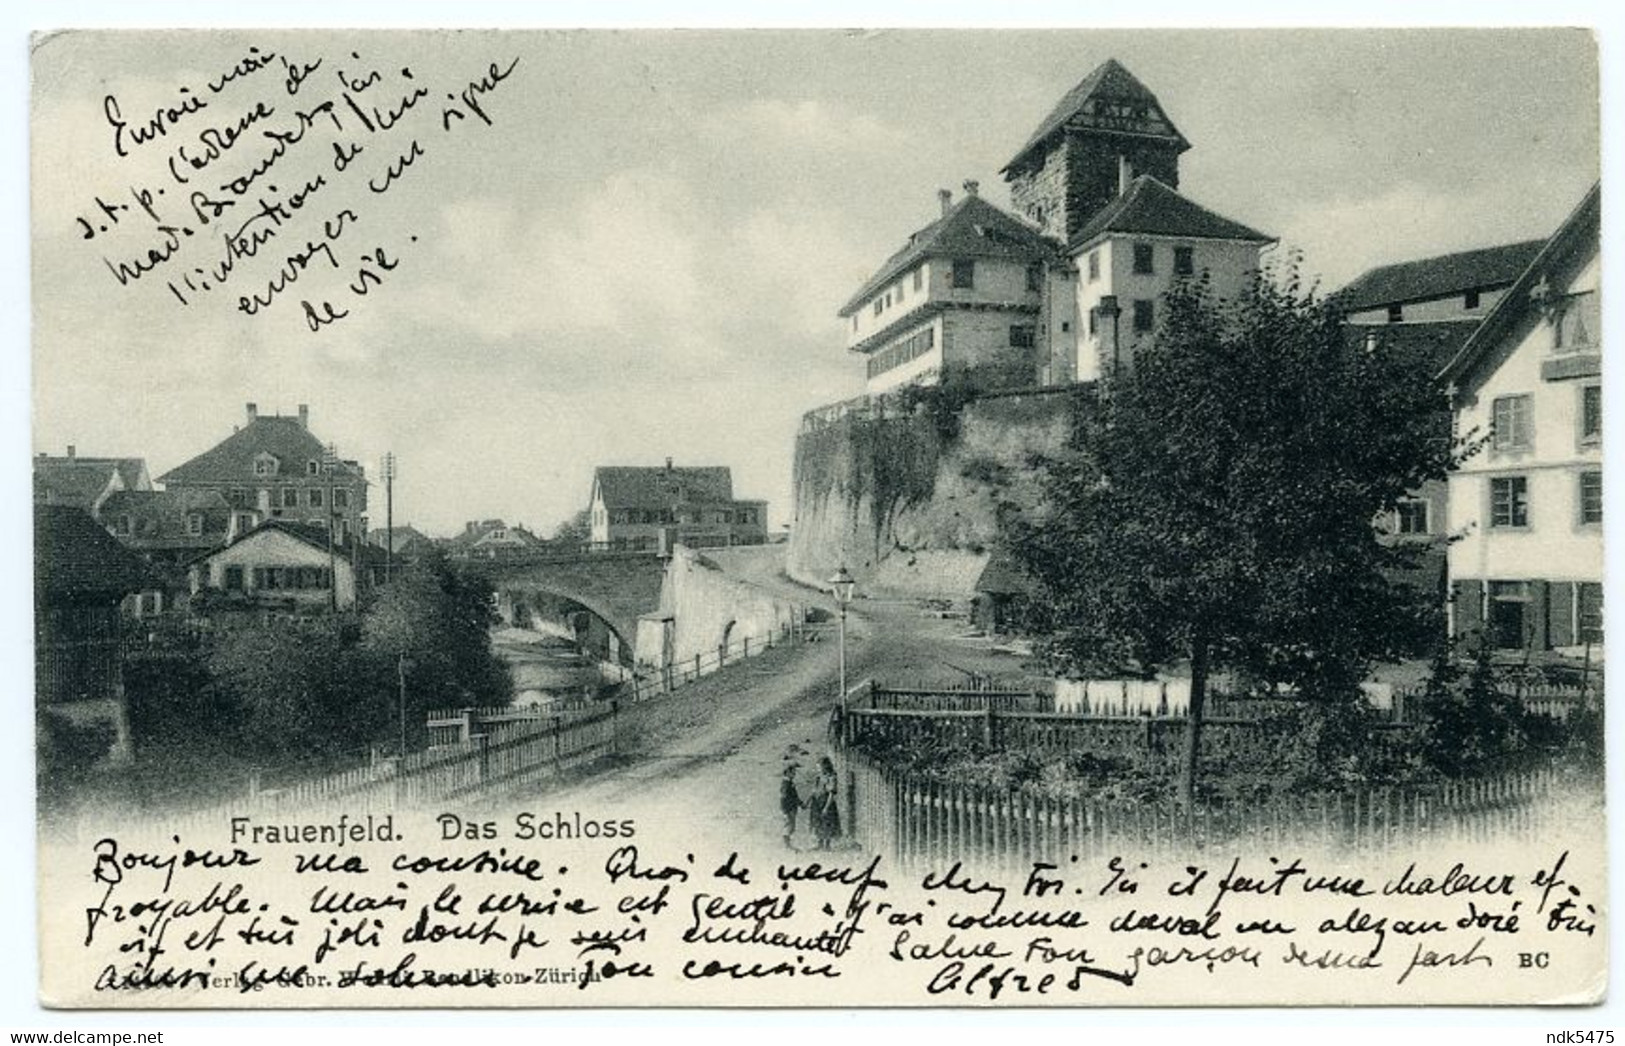 Envoie moi,
s.t.p. l'adresse de
mad. Biondet, j'ai
l'intention de lui
envoyer un signe
de vie.
Frauenfeld. Das Schloss
Bonjour ma cousine. Quoi de neuf chez toi. Ici il fait une chaleur ef-
froyable. Mais le service est gentil. J'ai comme cheval un alezan doré très
vif et très joli dont je suis enchanté. Salue ton garçon de ma part
ainsi que Ton cousin Alfred
Verlag Gebr. Bendlikon-Zürich
BC
ndk5475